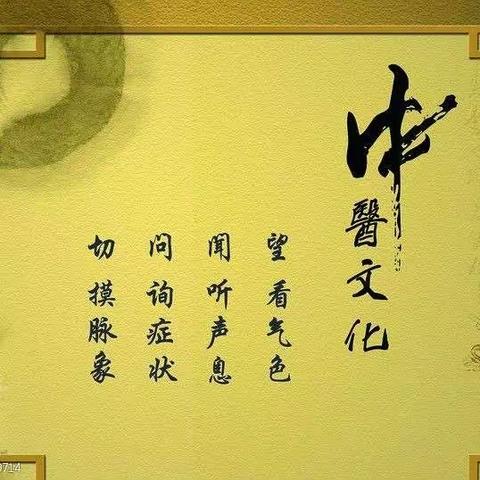 中醫文化
望 看气色
闻 听声息
问 询症状
切 摸脉象
0714